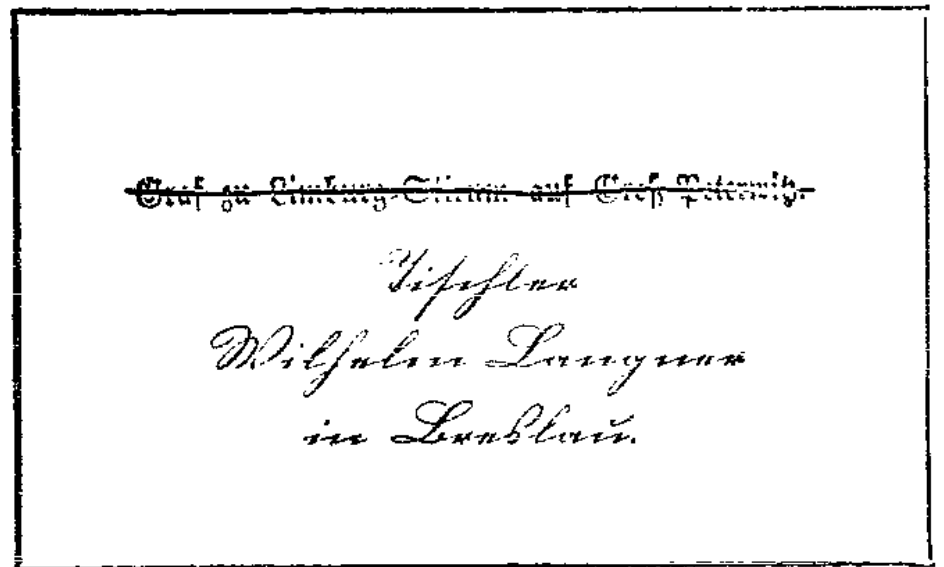 Graf zu Limburg-Stirum auf Groß Peterwitz.
Tischler
Wilhelm Langner
in Breslau.